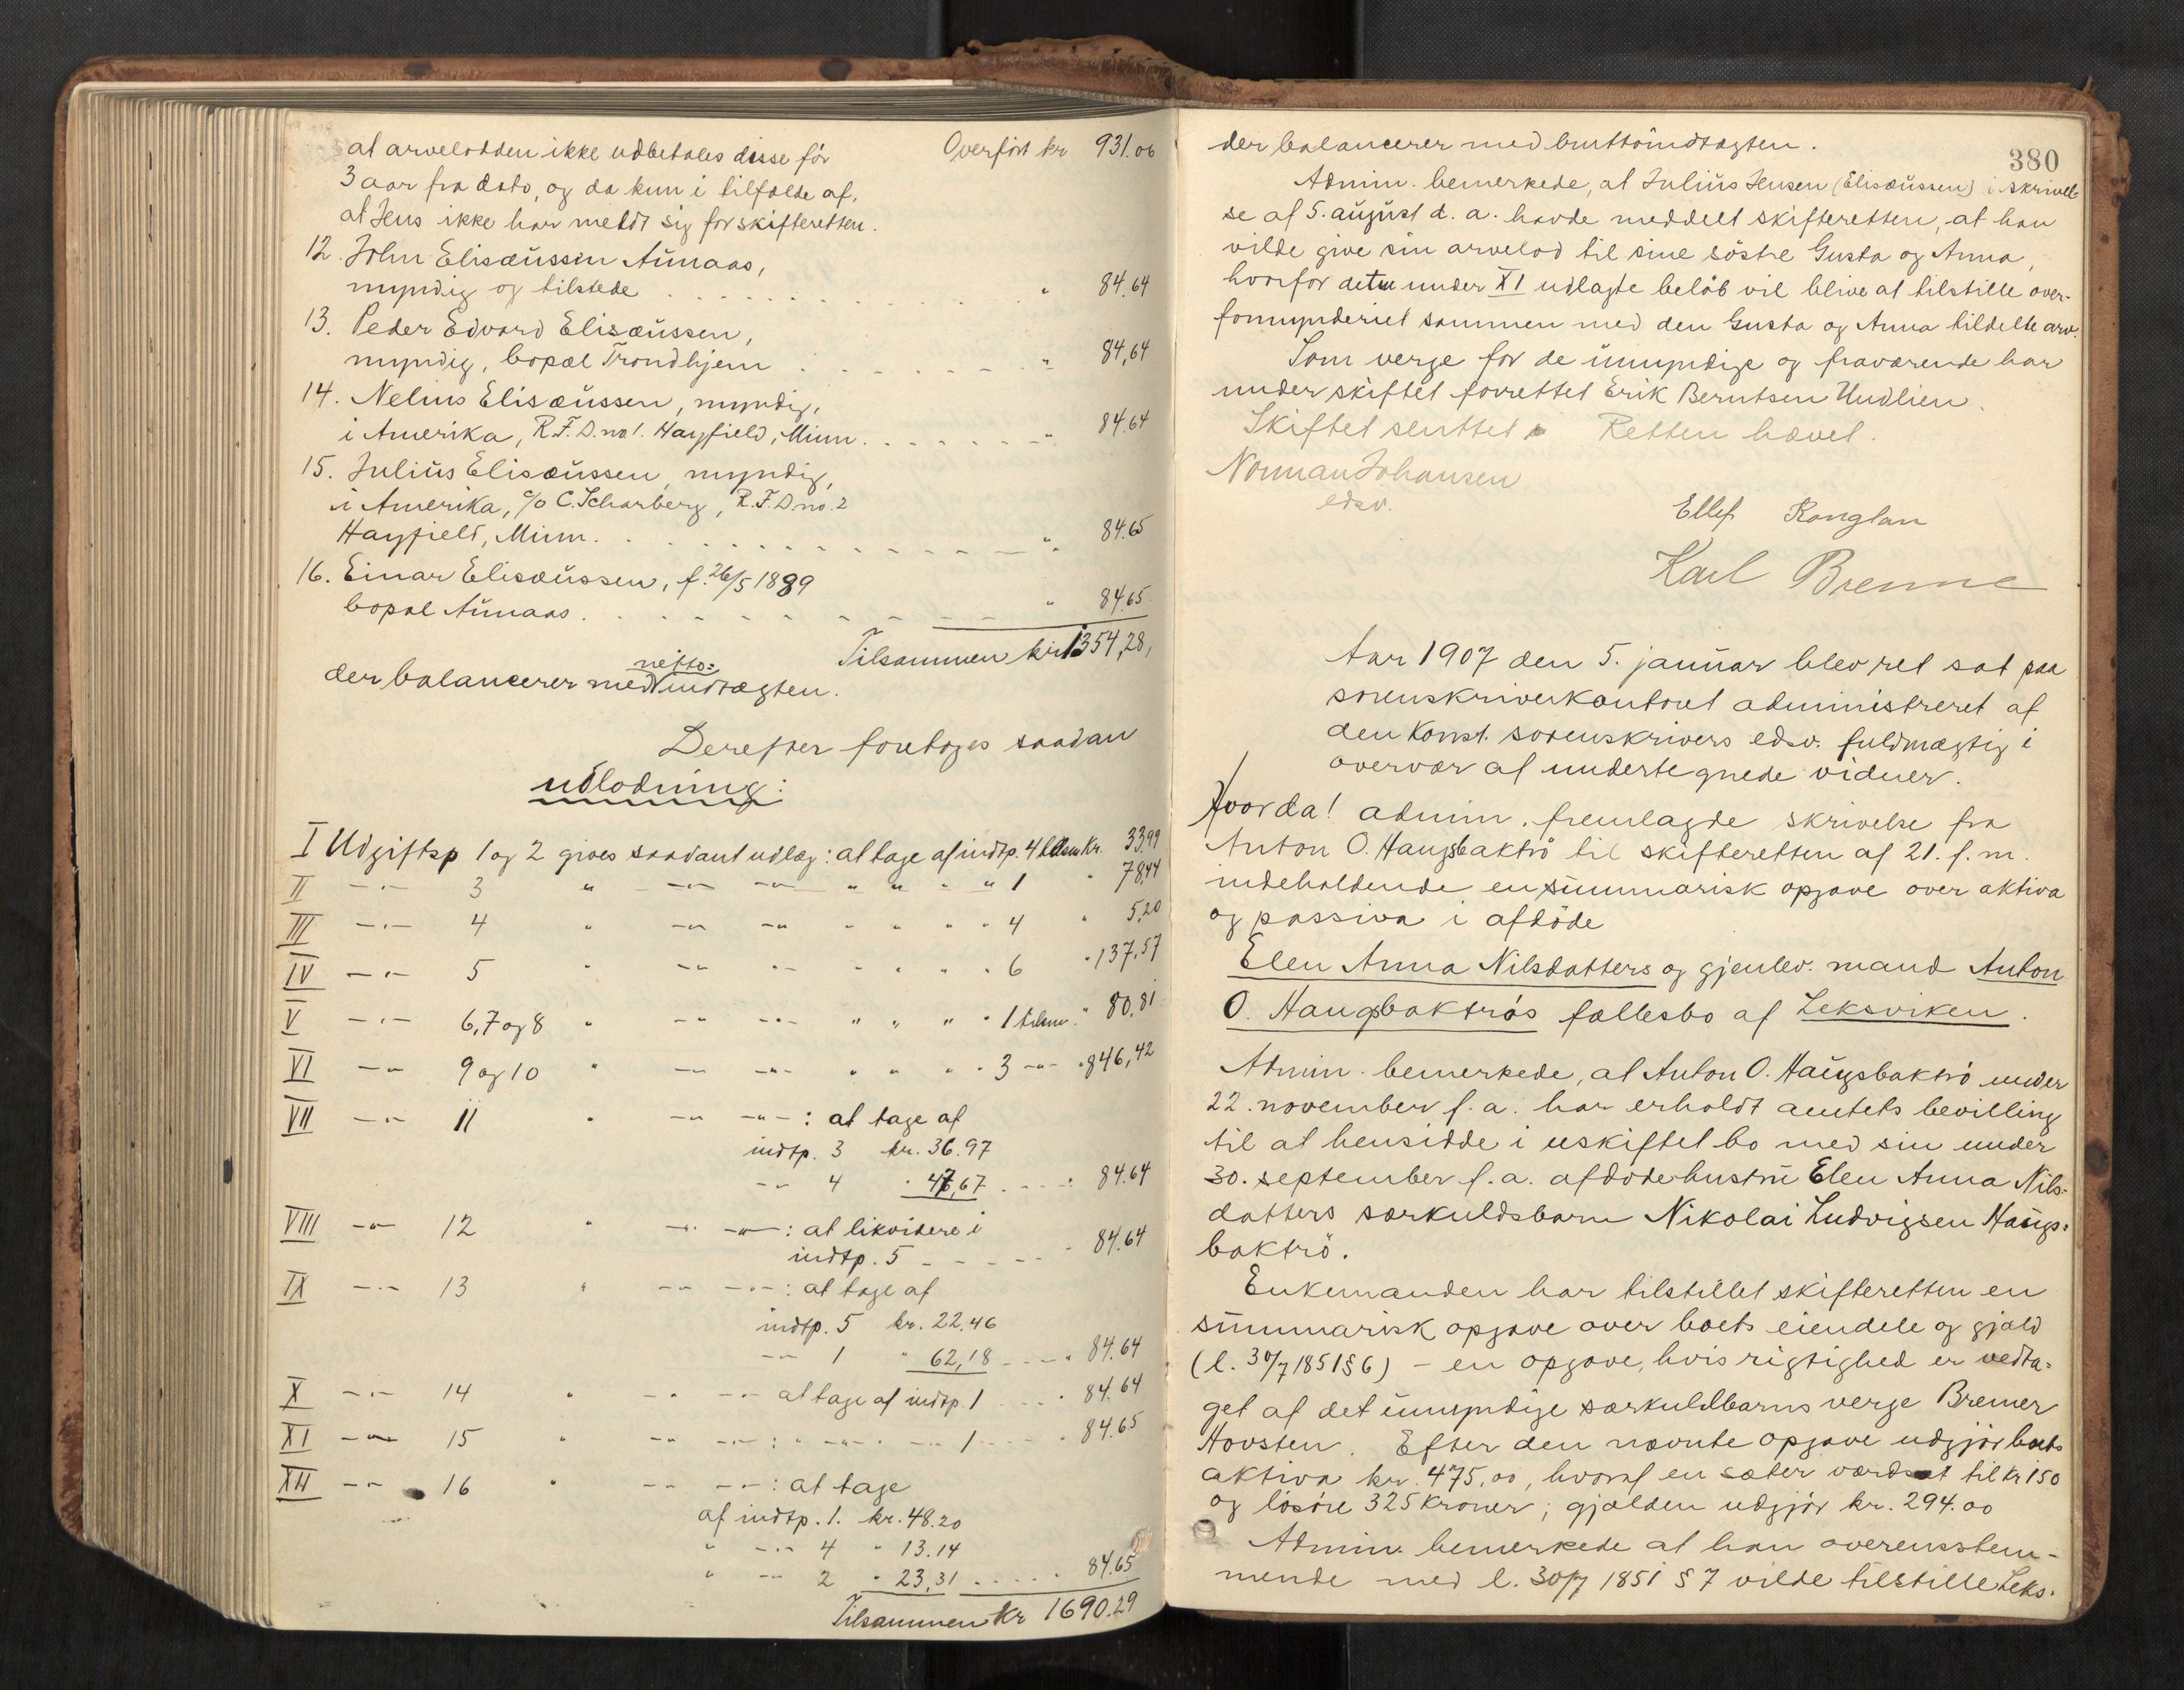 at arvelodden ikke udbetales disse før Overført kr 931.06
3 aar fra dato, og da kun i tilfælde af,
at Jens ikke har meldt sig for skifteretten.
12. John Elisæussen Aunaas,
myndig og tilstede . . . . " 84.64
13. Peder Edvard Elisæussen,
myndig, bopæl Trondhjem . . . . " 84,64
14. Nelius Elisæussen, myndig,
i Amerika, R.F.D. no 1. Hayfield, Minn. . . . " 84.64
15. Julius Elisæussen, myndig,
i Amerika, c/o C. Scharberg, R.F.D. no. 2
Hayfield, Minn. . . . . " 84.65
16. Einar Elisæussen, f. 26/5 1889
bopæl Aunaas . . . . " 84.65
Tilsammen kr. 1354,28,
der balancerer med netto-indtægten.
Derefter foretoges saadan
udlodning:
I Udgiftsp 1 og 2 gives saadant udlæg: at tage af indtp. 4 tilsm Kr. 33,99
II -"- 3 " -"- -"- " " " " 1 " 78,44
III -"- 4 " -"- -"- " " " " 4 " 5,20
IV -"- 5 " -"- -"- " " " " 6 " 137,57
V -"- 6, 7 og 8 " -"- -"- " " " " 1 tilsm. " 80,81
VI -"- 9 og 10 " -"- -"- " " " " 3 -"- " 846,42
VII -"- 11 " -"- -"-: at tage af
indtp. 3 kr. 36.97
-"- 4 " 47,67 . . . . " 84.64
VIII -"- 12 " -"- -"-: at likvidere i
indtp. 5 . . . . " 84.64
IX -"- 13 " -"- -"-: at tage af
indtp. 5 kr. 22.46
-"- 1 " 62,18 . . . . " 84.64
X -"- 14 " -"- -"- at tage af indtp. 1 . . . " 84.64
XI -"- 15 " -"- -"-: " -"- " -"- 1 . . . " 84.65
XII -"- 16 " -"- -"-: at tage
af indtp. 1. kr. 48.20
" -"- 4 " 13.14
" -"- 2 " 23,31 . . . . " 84.65
Tilsammen Kr 1690.29
380
der balancerer med bruttoindtægten.
Admin. bemerkede, at Julius Jensen (Elisæussen) i skrivel-
se af 5. august d. a. havde meddelt skifteretten, at han
vilde give sin arvelod til sine søstre Gusta og Anna,
hvorfor dette under XI udlagte beløb vil blive at tilstille over-
formynderiet sammen med den Gusta og Anna tildelte arv.
Som verge for de umyndige og fraværende har
under skiftet forrettet Erik Berntsen Undlien.
Skiftet sluttet. Retten hævet.
Norman Johansen
edsv.
Ellef Ranglan
Karl Brenne
Aar 1907 den 5. januar blev ret sat paa
sorenskriverkontoret administreret af
den konst. sorenskrivers edsv. fuldmægtig i
overvær af undertegnede vidner.
Hvorda! admin. fremlagde skrivelse fra
Anton O. Haugsbaktrø til skifteretten af 21. f. m.
indeholdende en summarisk opgave over aktiva
og passiva i afdøde
Elen Anna Nilsdatters og gjenlev. mand Anton
O. Haugsbaktrøs fællesbo af Leksviken.
Admin. bemerkede, at Anton O. Haugsbaktrø under
22. november f. a. har erholdt amtets bevilling
til at hensidde i uskiftet bo med sin under
30. september f. a. afdøde hustru Elen Anna Nils-
datters særkuldsbarn Nikolai Ludvigsen Haugs-
baktrø.
Enkemanden har tilstillet skifteretten en
summarisk opgave over boets eiendele og gjæld
(l. 30/7 1851 § 6) - en opgave, hvis rigtighed er vedta-
get af det umyndige særkuldbarns verge Bremer
Hovsten. Efter den nævnte opgave udgjør boets
aktiva kr. 475,00, hvoraf en sæter værdsat til kr 150
og løsøre 325 kroner; gjælden udgjør kr. 294.00
Admin. bemerkede at han overensstem-
mende med l. 30/7 1851 § 7 vilde tilstille Leks-